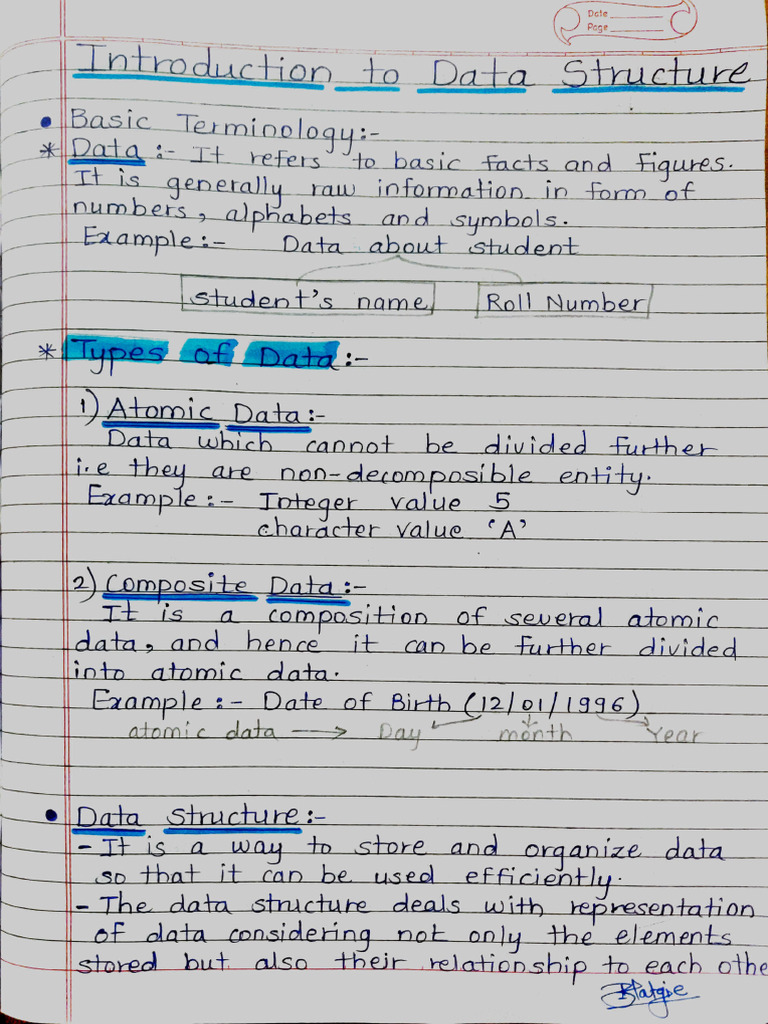 Date
Page
Introduction to Data Structure
• Basic Terminology:-
* Data :- It refers to basic facts and figures.
It is generally raw information in form of
numbers, alphabets and symbols.
Example:- Data about student
student's name Roll Number
* Types of Data:-
1) Atomic Data:-
Data which cannot be divided further
i.e they are non-decomposible entity.
Example:- Integer value 5
character value 'A'
2) Composite Data:-
It is a composition of several atomic
data, and hence it can be further divided
into atomic data.
Example:- Date of Birth (12/01/1996)
atomic data → Day month Year
• Data structure:-
- It is a way to store and organize data
so that it can be used efficiently.
- The data structure deals with representation
of data considering not only the elements
stored but also their relationship to each othe